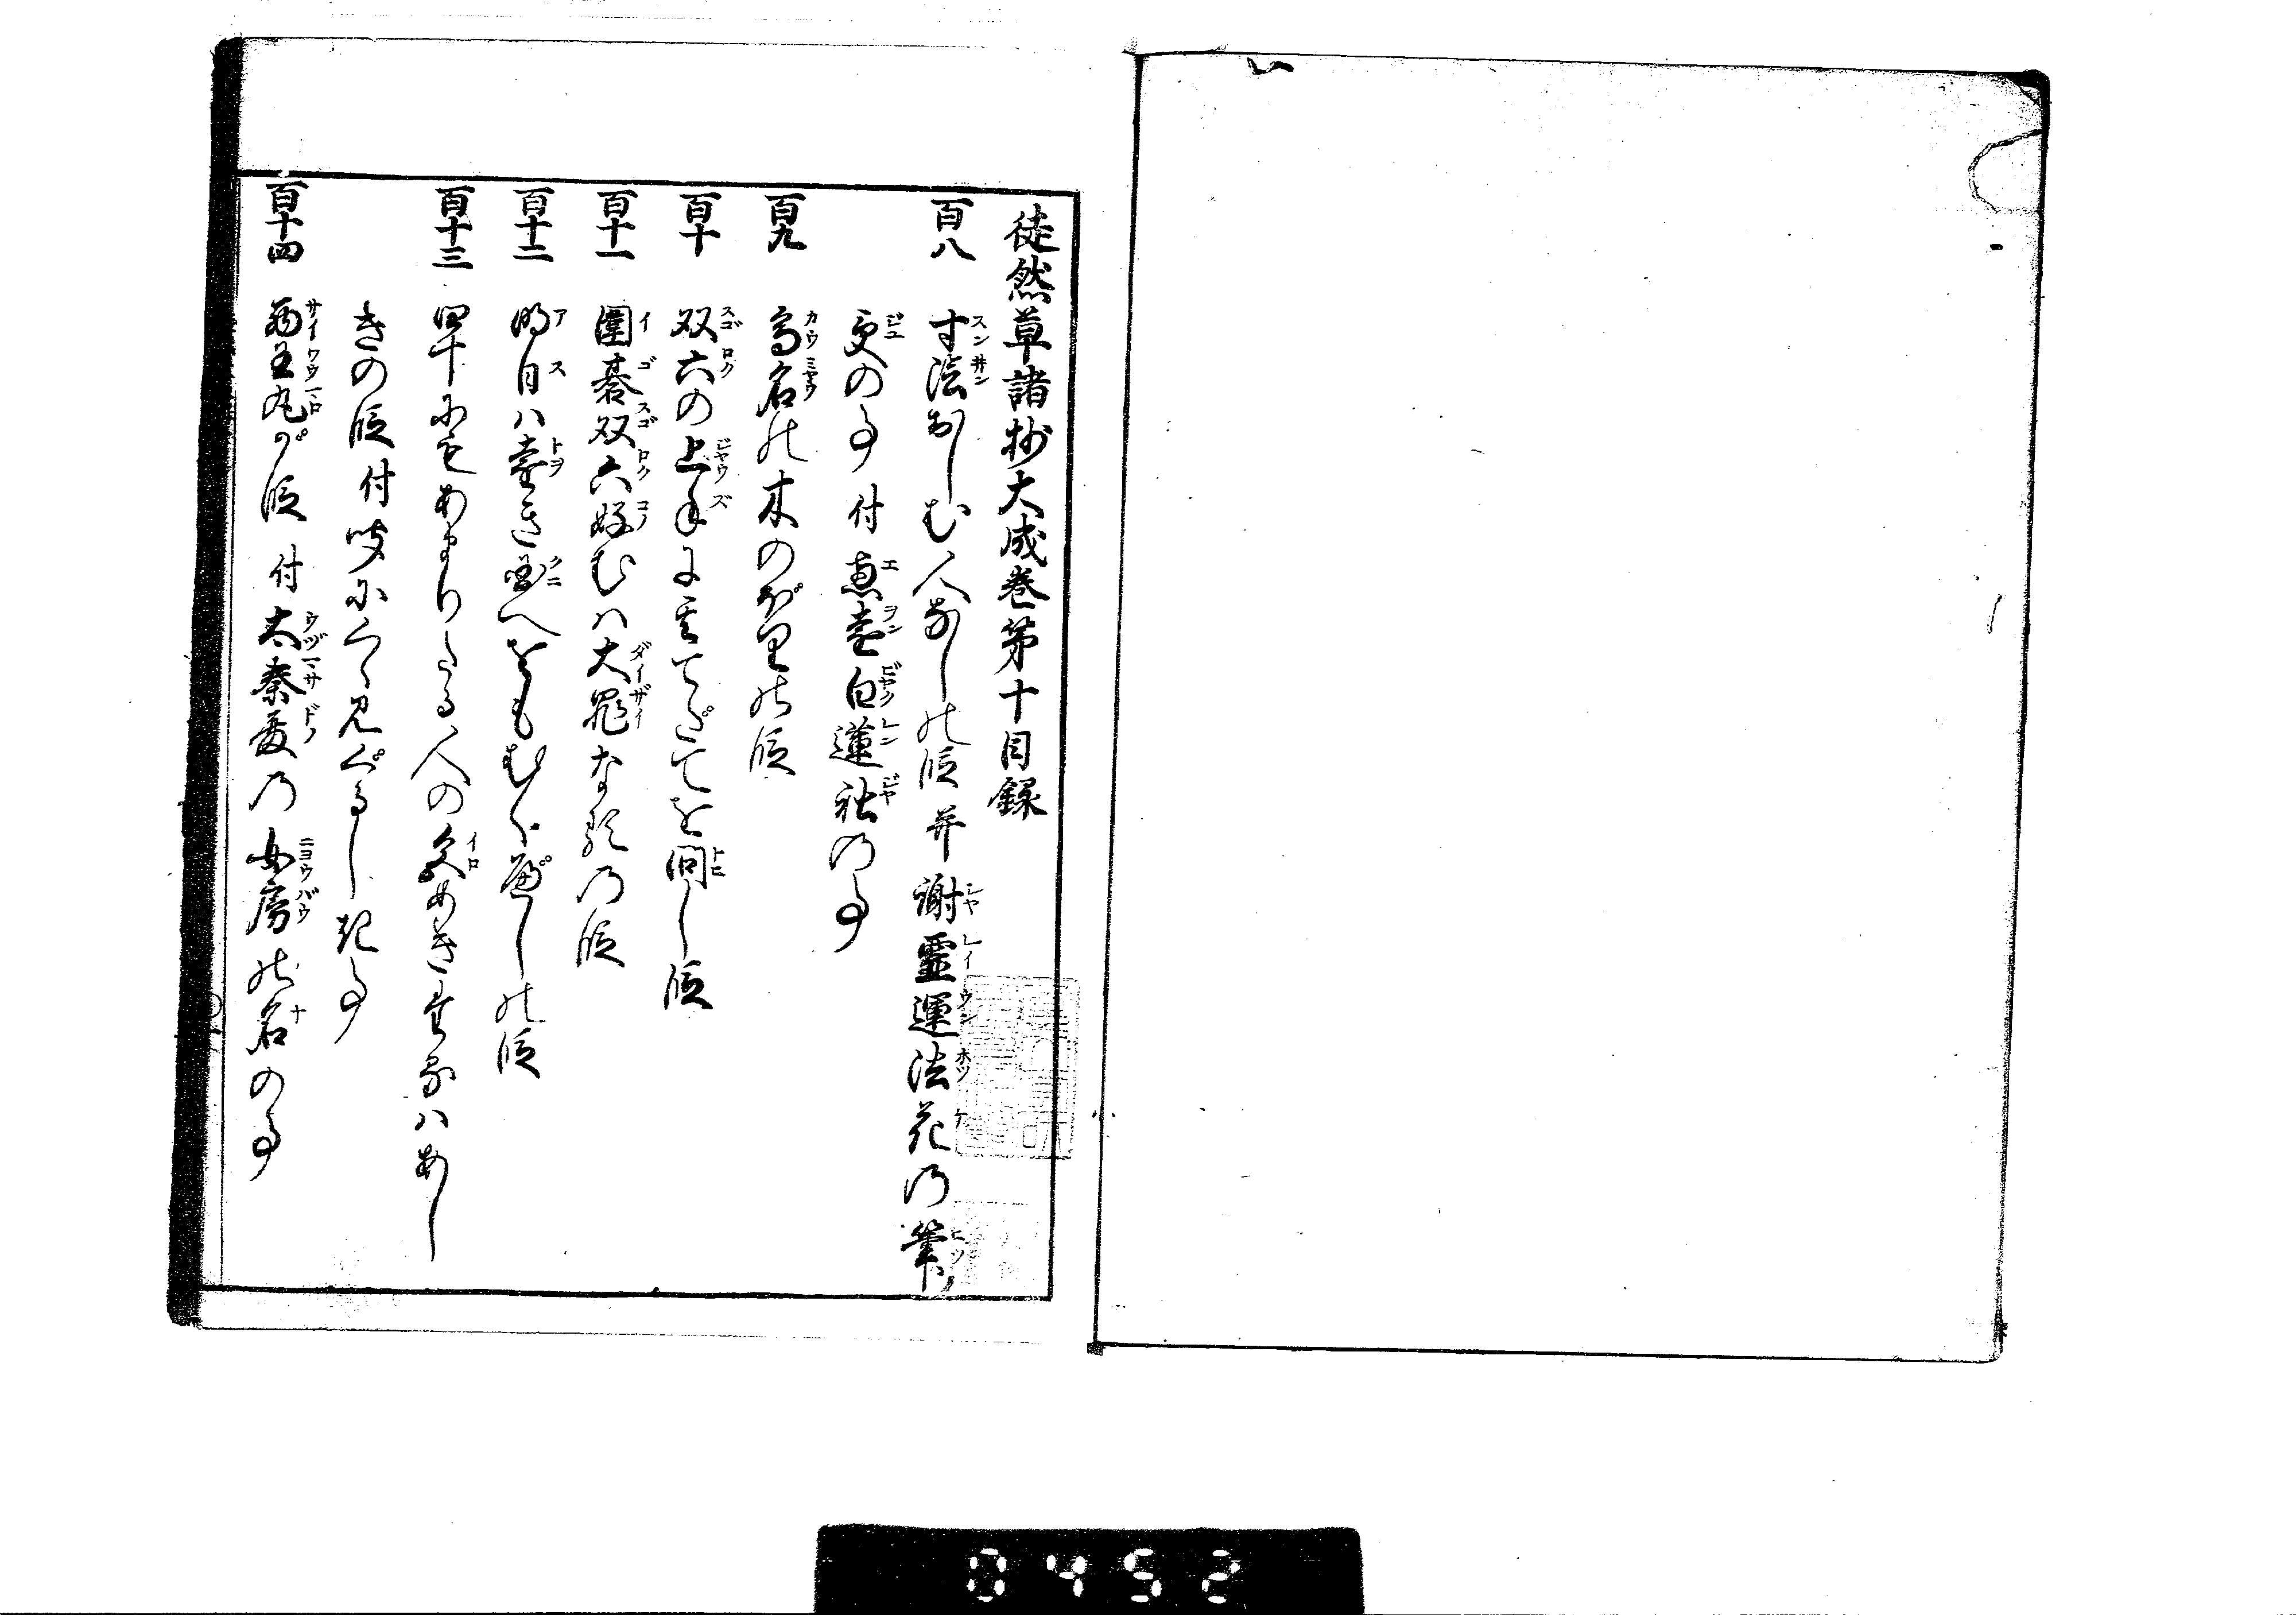 徒然草諸抄大成巻第十目録
百八 寸陰おしむ人なしの段 并 謝霊運法花の筆
受の事 付 恵遠白蓮社の事
百九 高名の木のぼりの段
百十 双六の上手にそのてだてを問し段
百十一 囲碁双六好むは大罪なるの段
百十二 明日は遠き国へをもむくべしの段
百十三 四十にもあまりたる人の色めきすけるはあし
きの段 付 聞にくく見ぐるし起事
百十四 西王丸が段 付 太秦殿の女房の名の事
0452